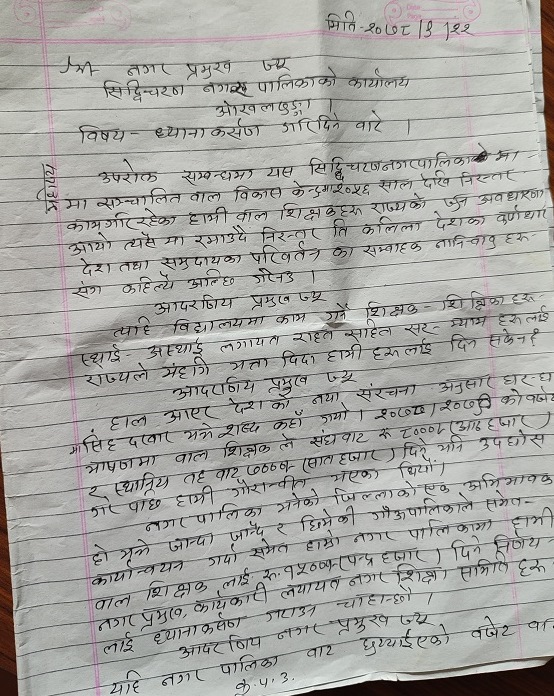 मिति-२०७८/९/२२
श्री नगर प्रमुख ज्यू
सिद्धिचरण नगर पालिकाको कार्यालय
ओखलढुङ्गा ।
विषय- ध्याना कर्सण गरिदिने बारे ।
महोदय
उपरोक्त सम्बन्धमा यस सिद्धिचरण नगरपालिकाको मा
मा सञ्चालित वाल विकास केन्द्रमा २०५६ साल देखि निरन्तर
कामगरिरहेका हामी वाल शिक्षकहरु राज्यको जुन अवधारणा
आयो त्यस मा रमाउदै निरन्तर ति कलिला देशका कर्णधार
देश तथा समुदायका परिवर्तन का सम्वाहक नानिवावु हरु
संग कहिल्यै
आदरणिय प्रमुख ज्यू
त्यहि विद्यालयमा काम गर्ने शिक्षक-शिक्षिका हरु
स्थाई-अस्थाई लगायत राहत सहित सर-म्याम हरुलाई
राज्यले महंगि भत्ता दिदा हामी हरुलाई दिन सकेन ।
आदरणिय प्रमुख ज्यू
हाल आएर देश को नया संरचना अनुसार घर-घ
मा सिंह दरवार भन्ने शब्द कहाँ गयो । को वजेट
भाषणमा वाल शिक्षक ले संघवाट रु ८०००।- (आठ हजार)
र स्थानिय तह वाट ७०००।- (सात हजार) दिने भनि उदघोस
गरे पछि हामी गौरान्वीत भएका थियौँ ।
नगर पालिका भनेको जिल्लाको एक अभिभावक
हो भन्ने जान्दा जान्दै र छिमेकी गाँऊपालिकाले समेत
कार्यान्वयन गर्दा समेत हाम्रो नगर पालिकामा हामी
वाल शिक्षक लाई रु. १५०००।- (पन्ध्र हजार) दिने निर्णय
नगर प्रमुख, कार्यकारी लगायत नगर शिक्षा समिति हरु
लाई ध्यानाकर्सण गराउन चाहान्छौ ।
आदरणिय नगर प्रमुख ज्यू
यहि नगर पालिका वाट छुट्याईएको वजेट वा
क.पृ.उ.